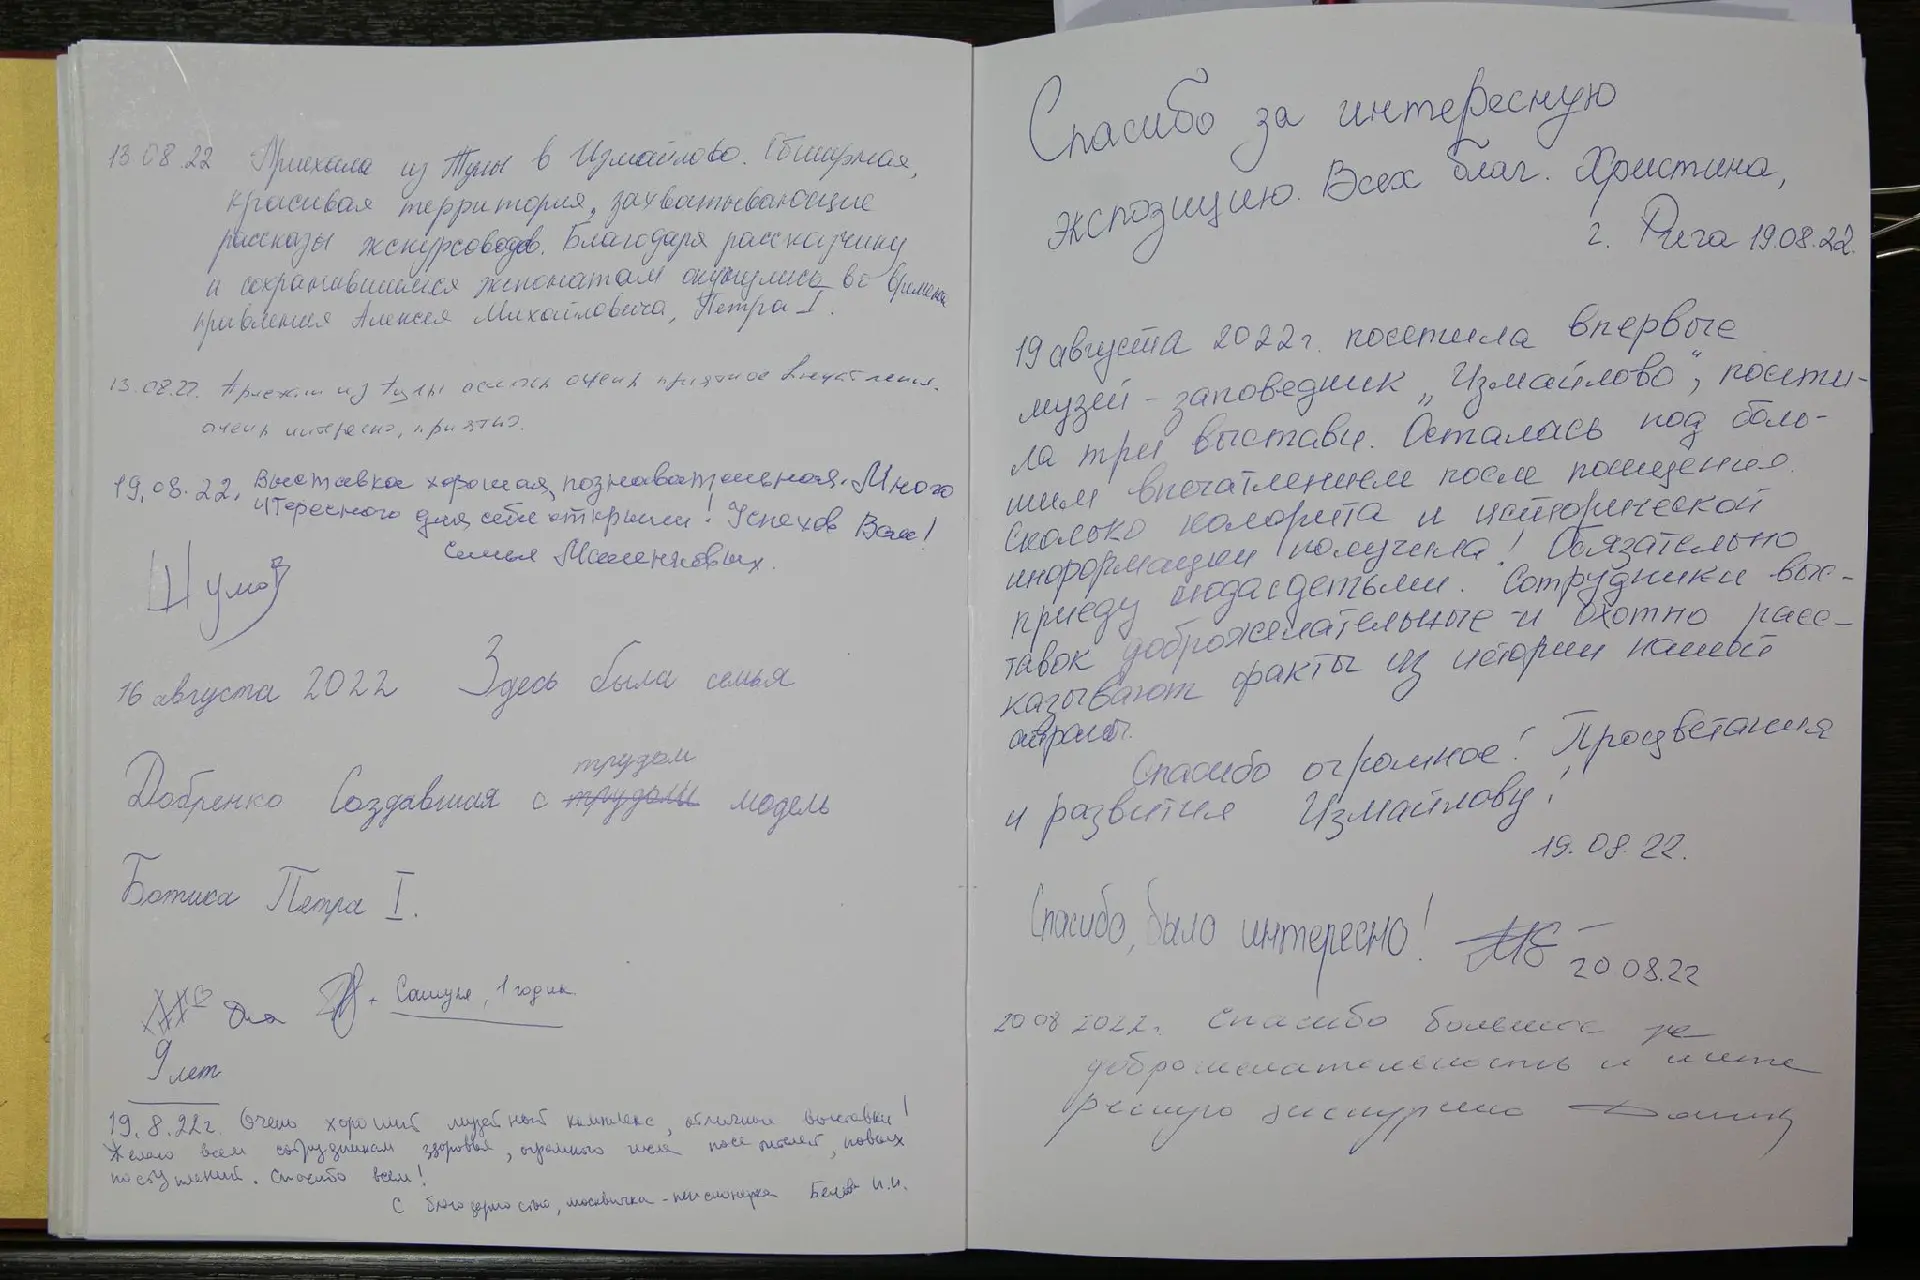 13.08.22 Приехала из Тулы в Измайлово. Обширная,
красивая территория, захватывающие
рассказы экскурсоводов. Благодаря рассказчику
и сохранившимся экспонатам окунулись во времена
правления Алексея Михайловича, Петра I.
13.08.22. Приехали из Тулы очень приятное впечатление.
очень интересно, приятно.
19.08.22. Выставка хорошая, познавательная. Много
итересного для себя открыли! Успехов Вам!
Семья
16 августа 2022 Здесь была семья
трудом
Добренко Создавшая с трудом модель
Ботика Петра I.
1 годик.
9 лет
19.8.22г. Очень хороший музейный комплекс, отличные выставки!
Желаю всем сотрудникам здоровья, огромного числа посетителей, новых
поступлений. Спасибо всем!
С благодарностью, москвичка-пенсионерка И.И.
Спасибо за интересную
экспозицию. Всех благ. Христина,
г. Рига 19.08.22.
19 августа 2022г. посетила впервые
музей-заповедник „Измайлово", посети-
ла три выставки. Осталась под боль-
шим впечатлением после посещения.
Сколько колорита и исторической
информации получила! Обязательно
приеду сюда с детьми. Сотрудники выс-
тавок доброжелательные и охотно расс-
казывают факты из истории нашей
страны.
Спасибо огромное! Процветания
и развития Измайлову!
19.08.22.
Спасибо, было интересно!
20 08.22
20 08 2022г. Спасибо большое за
доброжелательность и инте
ресную экскурсию